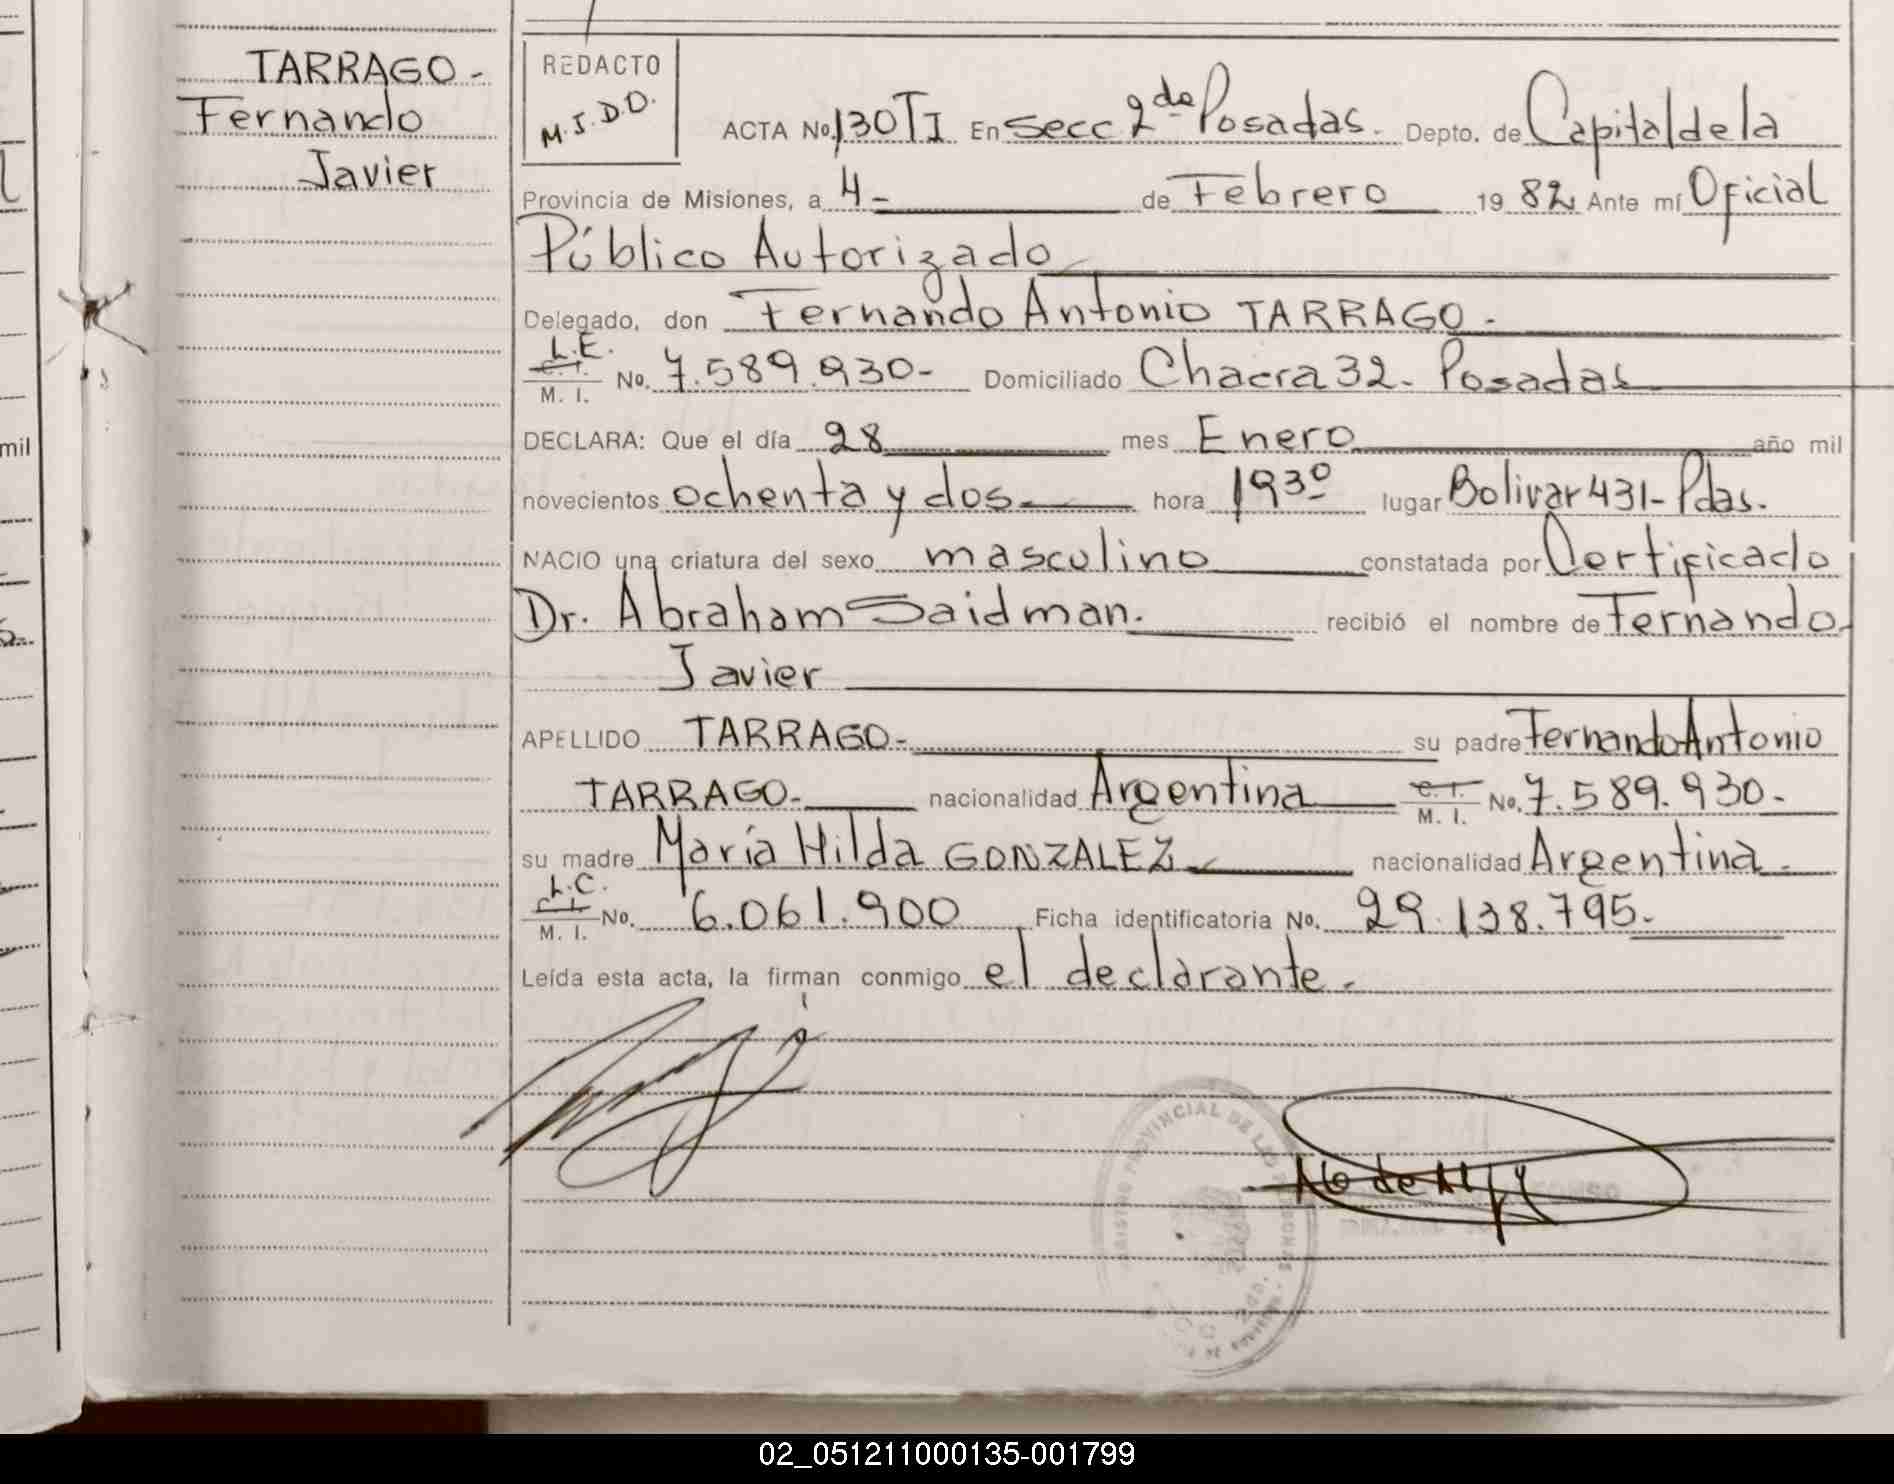 TARRAGO-
Fernando
Javier
mil
REDACTO
M.J.D.D.
ACTA No. 130 TI En Secc 2da Posadas. Depto. de Capital de la
Provincia de Misiones, a 4- de Febrero 1982 Ante mí Oficial
Público Autorizado
Delegado, don Fernando Antonio TARRAGO-
L.E.
C.I.
M. I. No. 7.589.930- Domiciliado Chacra 32- Posadas
DECLARA: Que el día 28 mes Enero año mil
novecientos ochenta y dos- hora 19 30 lugar Bolivar 431- Pdas.
NACIO una criatura del sexo masculino constatada por Certificado
Dr. Abraham Saidman. recibió el nombre de Fernando
Javier
APELLIDO TARRAGO- su padre Fernando Antonio
TARRAGO- nacionalidad Argentina C.I. M. I. No. 7.589.930-
su madre María Hilda GONZALEZ nacionalidad Argentina-
L.C.
C.I.
M. I. No. 6.061.900 Ficha identificatoria No. 29.138.795-
Leída esta acta, la firman conmigo el declarante.-
PROVINCIAL DE LAS PERSONAS
02_051211000135-001799